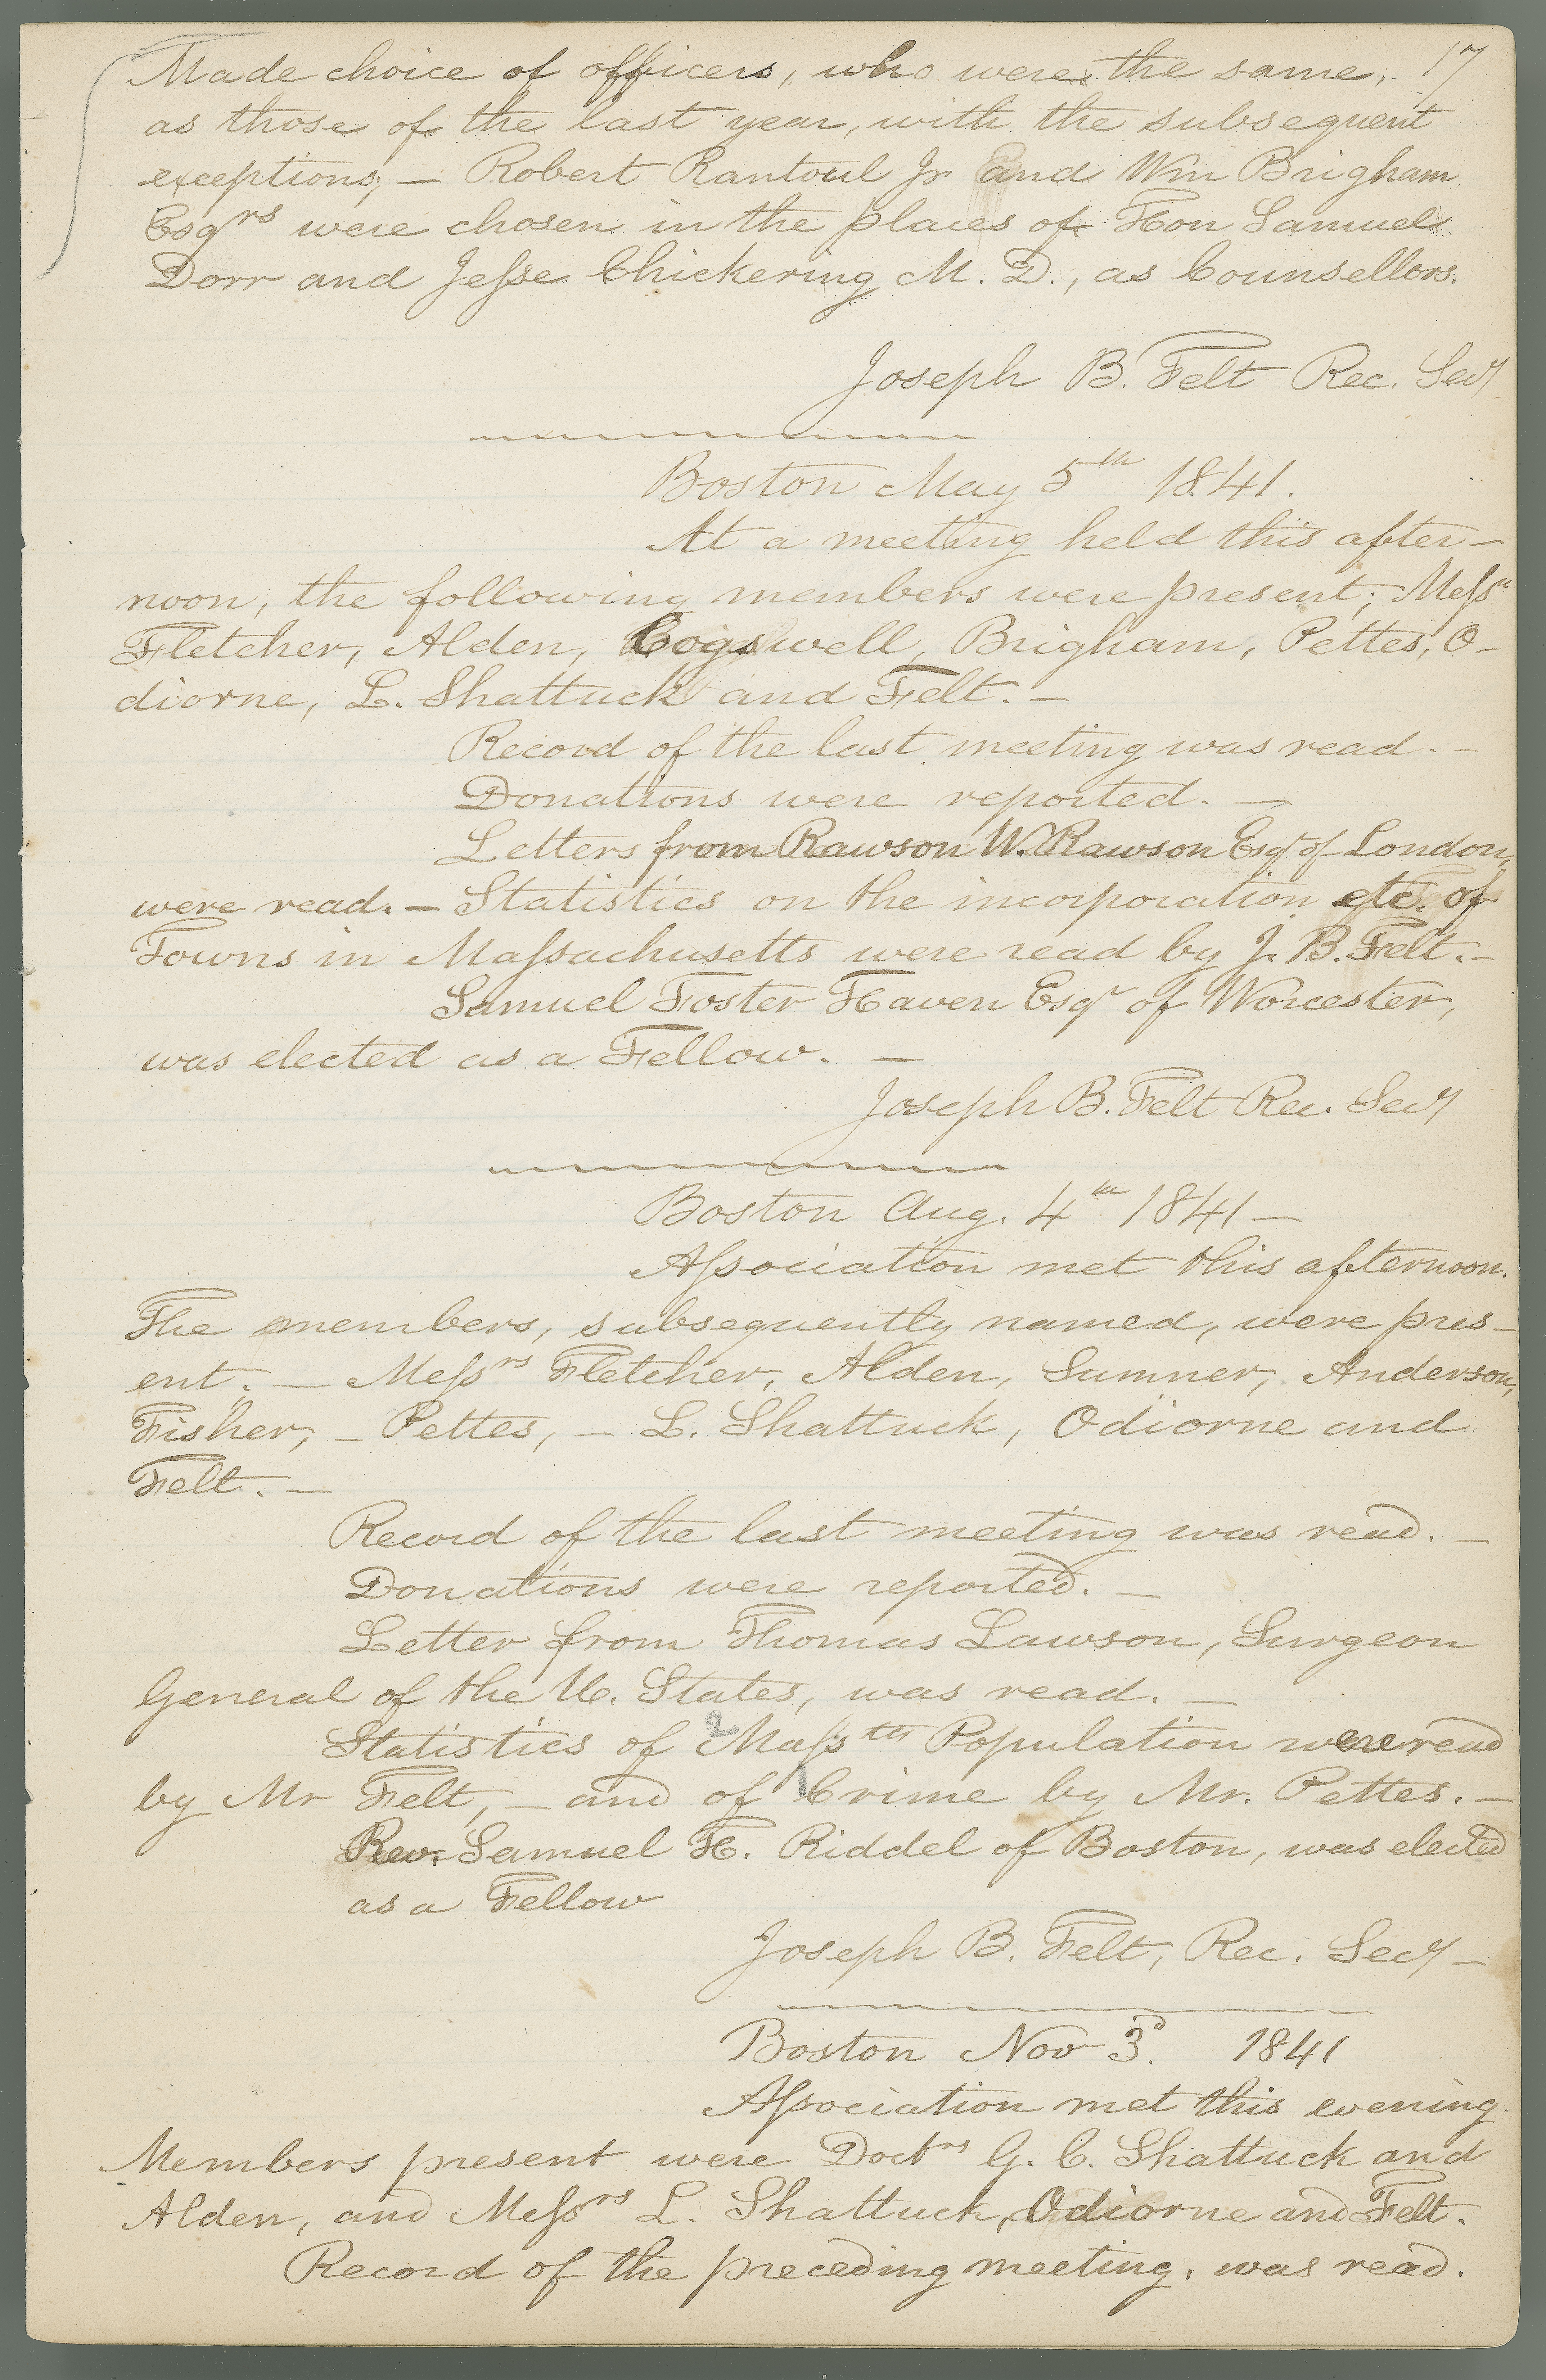 17
Made choice of officers, who were the same,
as those of the last year, with the subsequent
exceptions; — Robert Rantoul Jr and Wm Brigham
Esqrs were chosen in the places of Hon Samuel
Dorr and Jeſse Chickering M. D., as Counsellors.
Joseph B. Felt Rec. Secy
Boston May 5th 1841.
At a meeting held this after-
noon, the following members were present; Meſsrs
Fletcher, Alden, Cogswell, Brigham, Pettes, O-
diorne, L. Shattuck and Felt. —
Record of the last meeting was read. —
Donations were reported. —
Letters from Rawson W. Rawson Esqr of London,
were read. — Statistics on the incorporation etc. of
Towns in Maſsachusetts were read by J. B. Felt. —
Samuel Foster Haven Esqr of Worcester,
was elected as a Fellow. —
Joseph B. Felt Rec. Secy
Boston Aug. 4th 1841 —
Aſsociation met this afternoon.
The members, subsequently named, were pres-
ent. — Meſsrs Fletcher, Alden, Sumner, Anderson,
Fisher, — Pettes, — L. Shattuck, Odiorne and
Felt. —
Record of the last meeting was read. —
Donations were reported. —
Letter from Thomas Lawson, Surgeon
General of the U. States, was read. —
Statistics of Maſstts Population were read
by Mr Felt, — and of Crime by Mr. Pettes. —
Rev. Samuel H. Riddel of Boston, was elected
as a Fellow
Joseph B. Felt, Rec. Secy —
Boston Nov 3d. 1841
Aſsociation met this evening.
Members present were Doctrs G. C. Shattuck and
Alden, and Meſsrs L. Shattuck, Odiorne and Felt.
Record of the preceding meeting, was read.